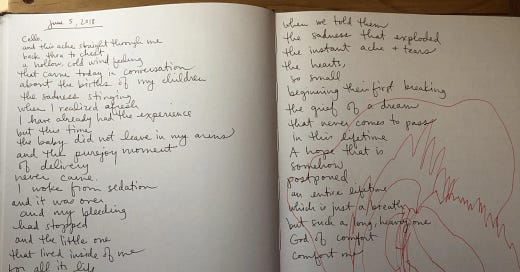 June 5, 2018
Cello,
and this ache straight through me
back then to chest
a hollow, cold wind feeling
that came today in conversation
about the births of my children
the sadness stinging
when I realized afresh
I have already had the experience
but this time
the baby did not leave in my arms
and the purejoy moment
of delivery
never came.
I woke from sedation
and it was over
and my bleeding
had stopped
and the little one
that lived inside of me
for all its life
when we told them
the sadness that exploded
the instant ache + tears
the hearts,
so small
beginning their first breaking
the grief of a dream
that never comes to pass
in this lifetime
A hope that is
somehow
postponed
an entire lifetime
which is just a breath
but such a long, heaving one
God of comfort
comfort me